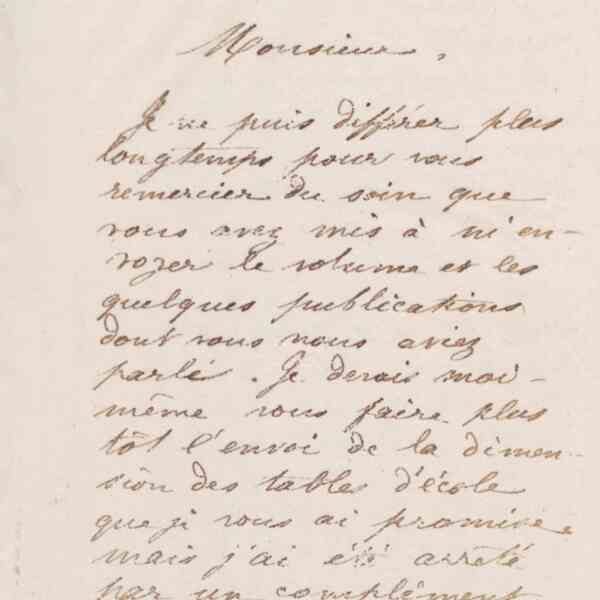 Monsieur,
Je ne puis différer plus
longtemps pour vous
remercier du soin que
vous avez mis à m'en-
voyer le volume et les
quelques publications
dont vous nous aviez
parlé. Je devais moi-
même vous faire plus
tôt l'envoi de la dimen-
sion des tables d'école
que je vous ai promise,
mais j'ai été arrêté
par un complément